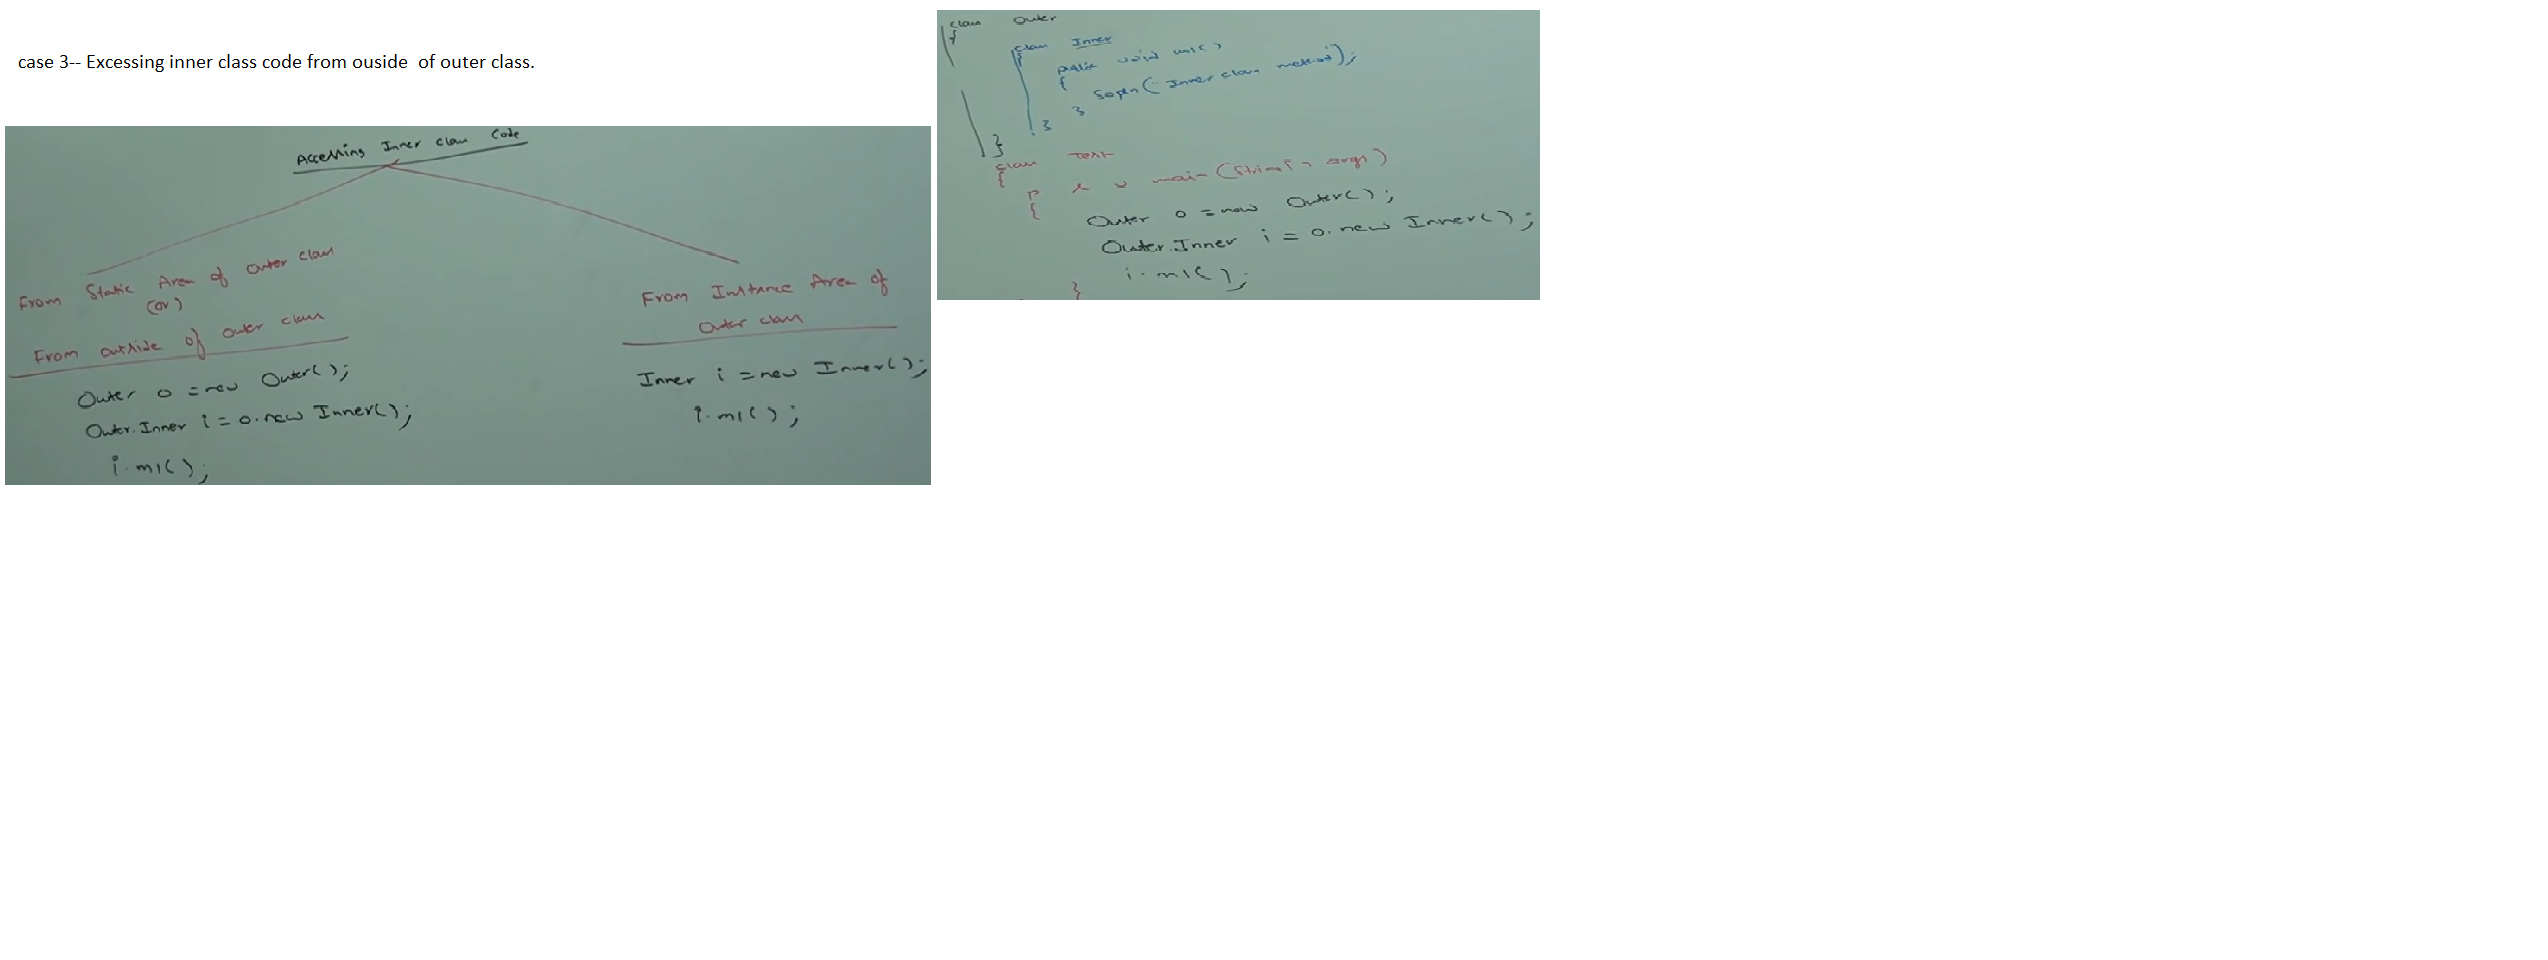 case 3-- Excessing inner class code from ouside  of outer class.
Accessing Inner class Code
From Static Area of Outer class
(or)
From outside of outer class
Outer o = new Outer();
Outer.Inner i = o.new Inner();
i.m1();
From Instance Area of
Outer class
Inner i = new Inner();
i.m1();
class Outer
{
class Inner
{
public void m1()
{
Sopln("Inner class method");
}
}
}
class Test
{
p s v main(String[] args)
{
Outer o = new Outer();
Outer.Inner i = o.new Inner();
i.m1();
}